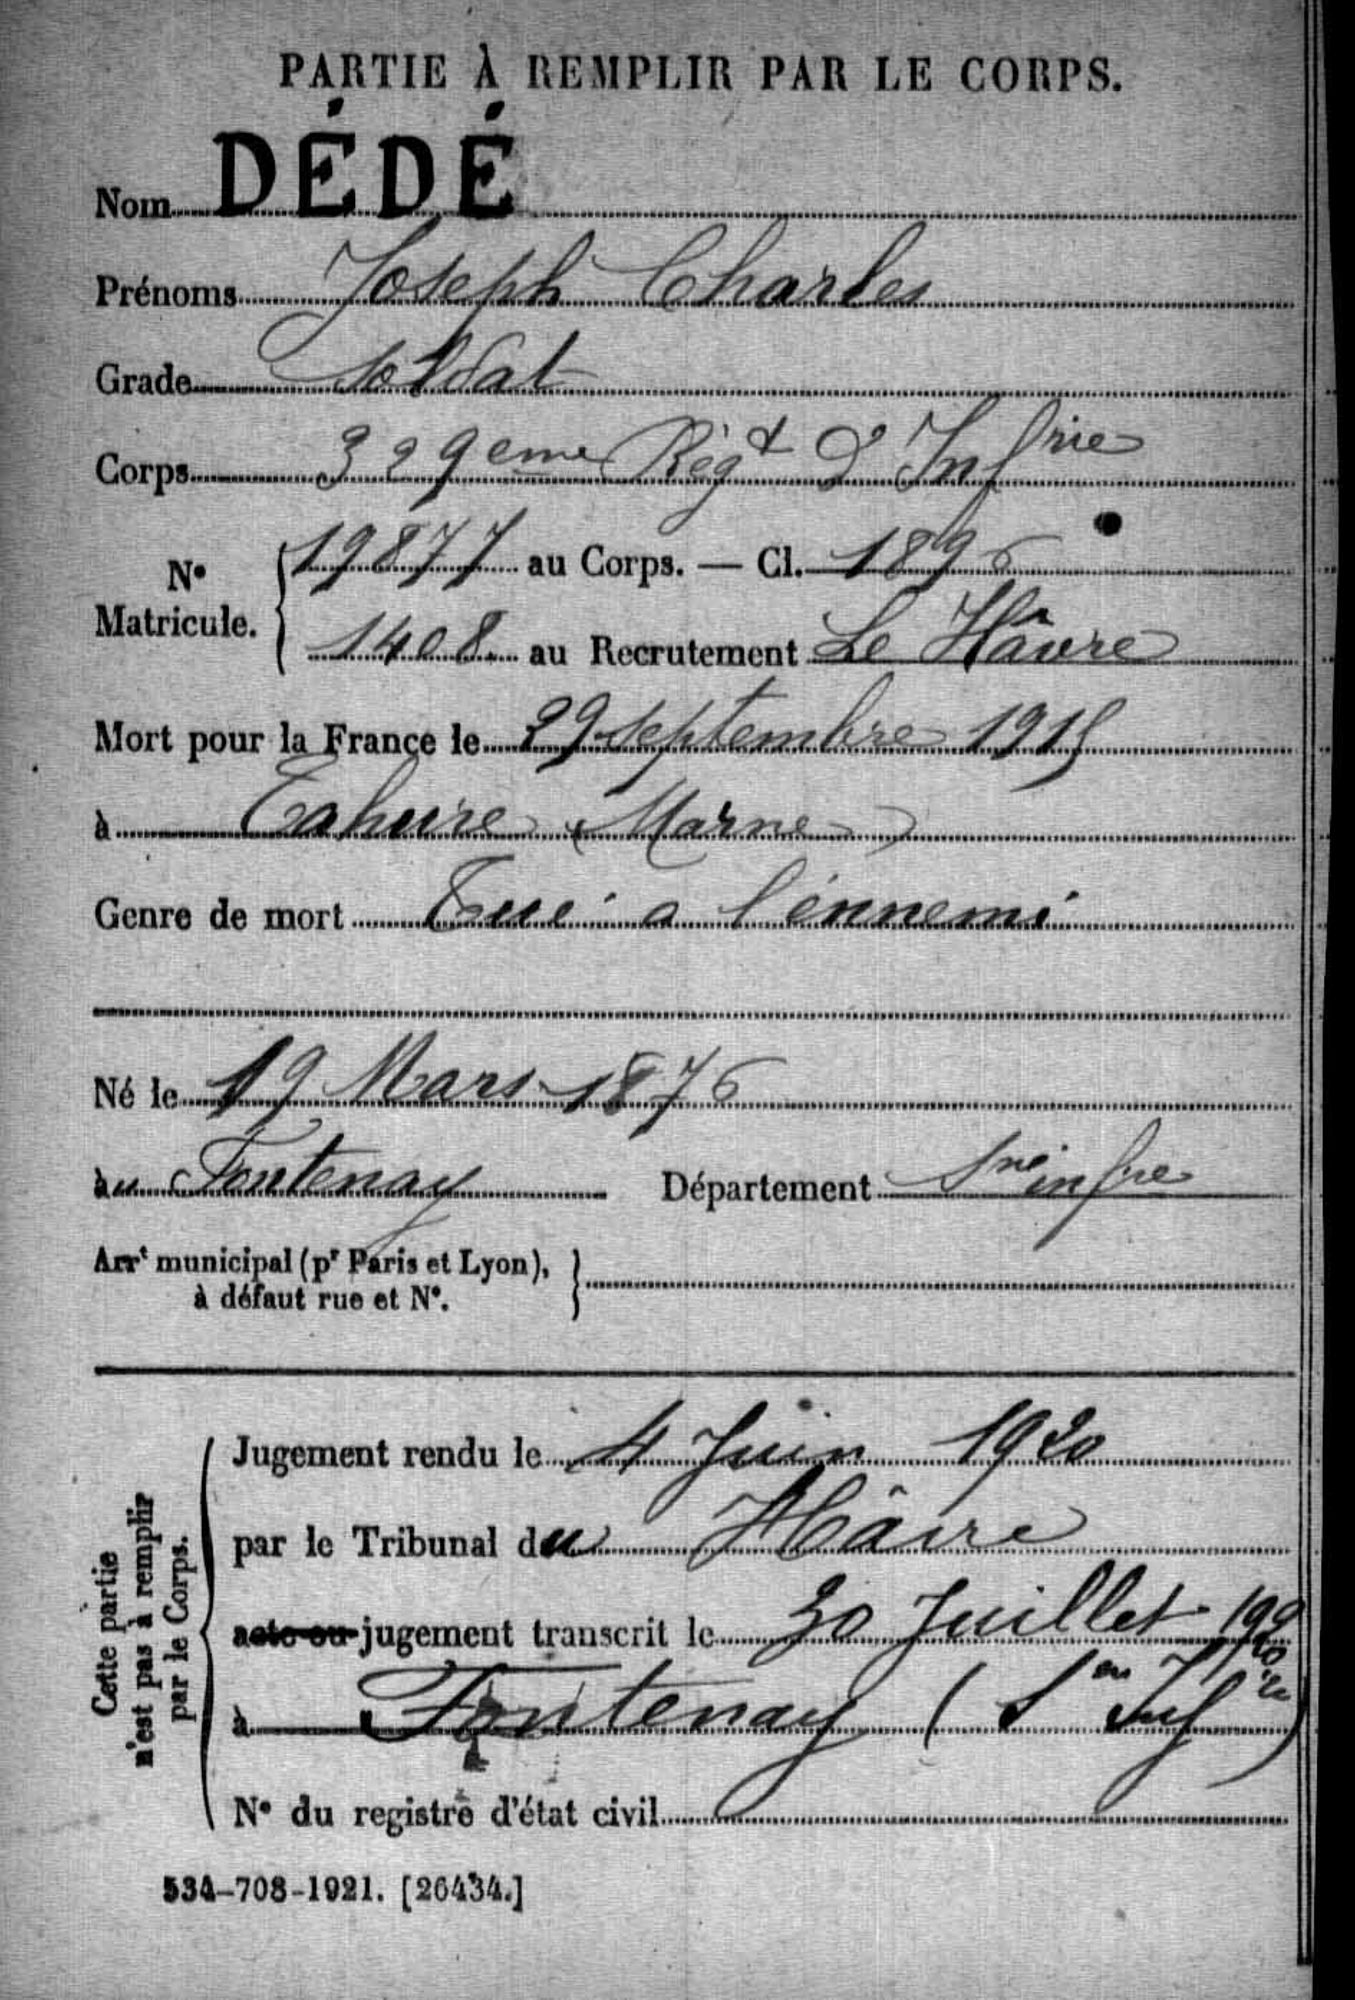 PARTIE À REMPLIR PAR LE CORPS.
Nom DÉDÉ
Prénoms Joseph Charles
Grade Soldat
Corps 329eme Régt d'Infrie
N° Matricule. 19877 au Corps. — Cl. 1896
1408. au Recrutement Le Hâvre
Mort pour la France le 29 septembre 1915
à Tahure (Marne)
Genre de mort Tué a l'énnemi
Né le 19 Mars 1876
au Fontenay Département Sne infre
Arrt municipal (pr Paris et Lyon),
à défaut rue et N°.
Cette partie
n'est pas à remplir
par le Corps.
Jugement rendu le 4 Juin 1920
par le Tribunal du Hâvre
acte ou jugement transcrit le 30 Juillet 1920
à Fontenay (Sne Infre)
N° du registre d'état civil
534-708-1921. [26434.]